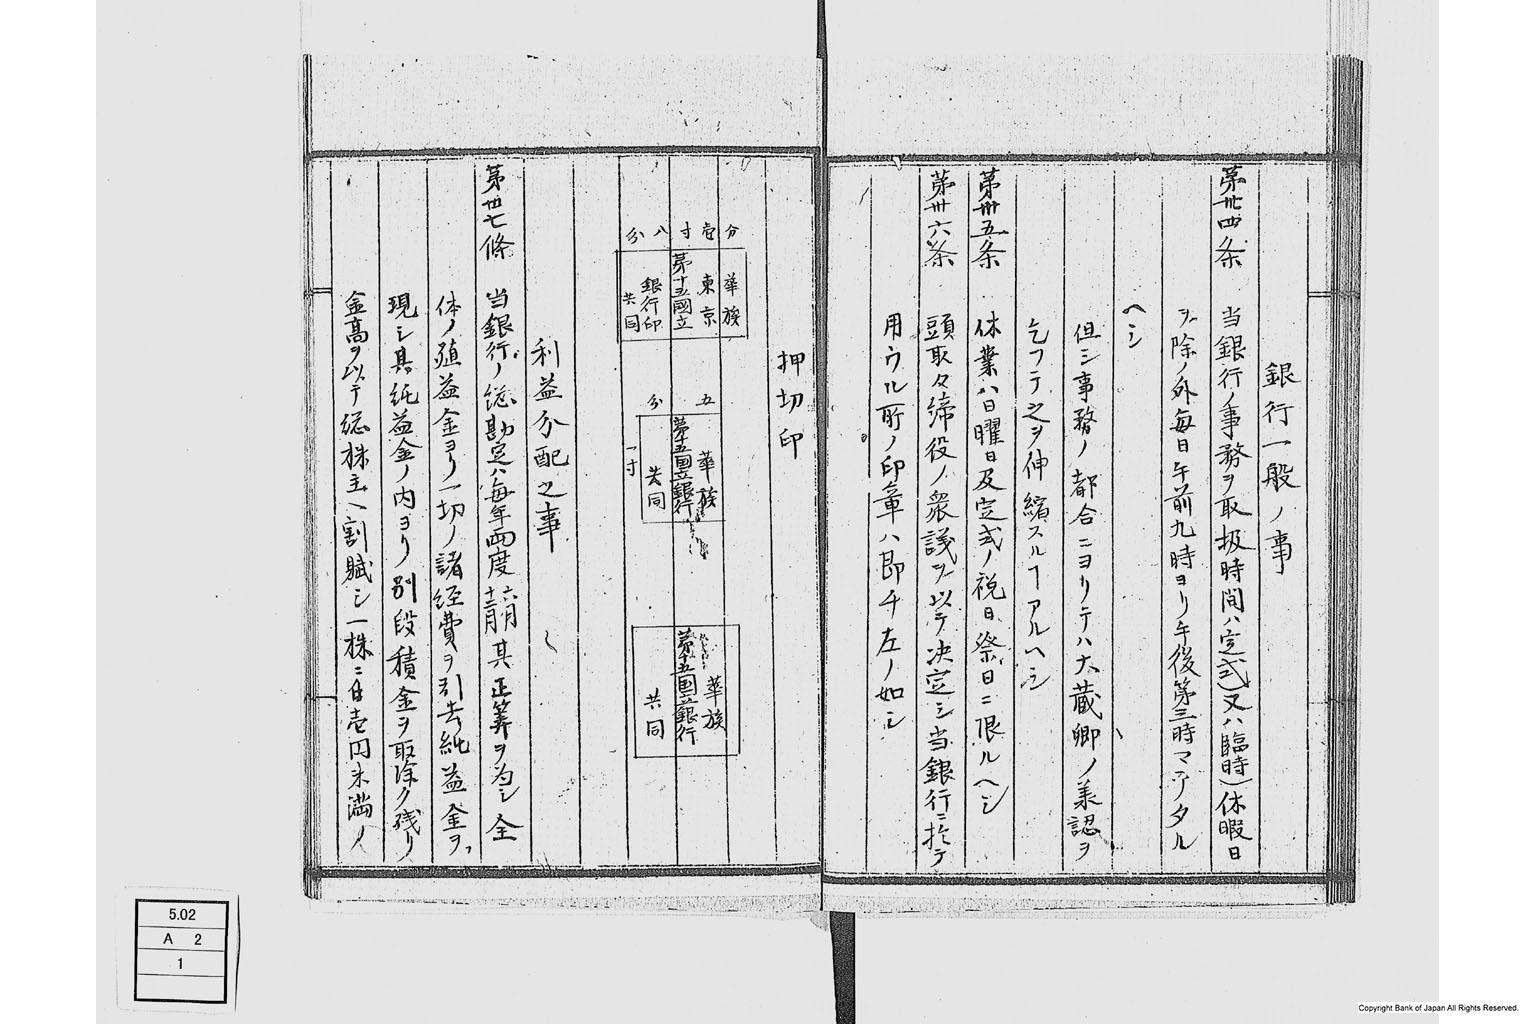 銀行一般ノ事
第卅四条 当銀行ノ事務ヲ取扱時間ハ定式(又ハ臨時)休暇日
ヲ除ノ外毎日午前九時ヨリ午後第三時マテタル
ヘシ
但シ事務ノ都合ニヨリテハ大蔵卿ノ承認ヲ
乞フテ之ヲ伸縮スルヿアルヘシ
第卅五条 休業ハ日曜日及定式ノ祝日祭日ニ限ルヘシ
第卅六条 頭取々締役ノ衆議ヲ以テ決定シ当銀行ニ於テ
用ウル所ノ印章ハ即チ左ノ如シ
押切印
分壱寸八分
華族
東京
第十五國立
銀行印
共同
五分
華族
第十五国立銀行
共同
一寸
華族
第十五国立銀行
共同
利益分配之事
第卅七條 当銀行ノ総勘定ハ毎年両度六月十二月其正算ヲ為シ全
体ノ殖益金ヨリ一切ノ諸経費ヲ引去純益金ヲ
現シ其純益金ノ内ヨリ別段積金ヲ取除ク残リ
金高ヲ以テ総株主ヘ割賦シ一株ニ付壱円未満ノ
5.02
A 2
1
Copyright Bank of Japan All Rights Reserved.